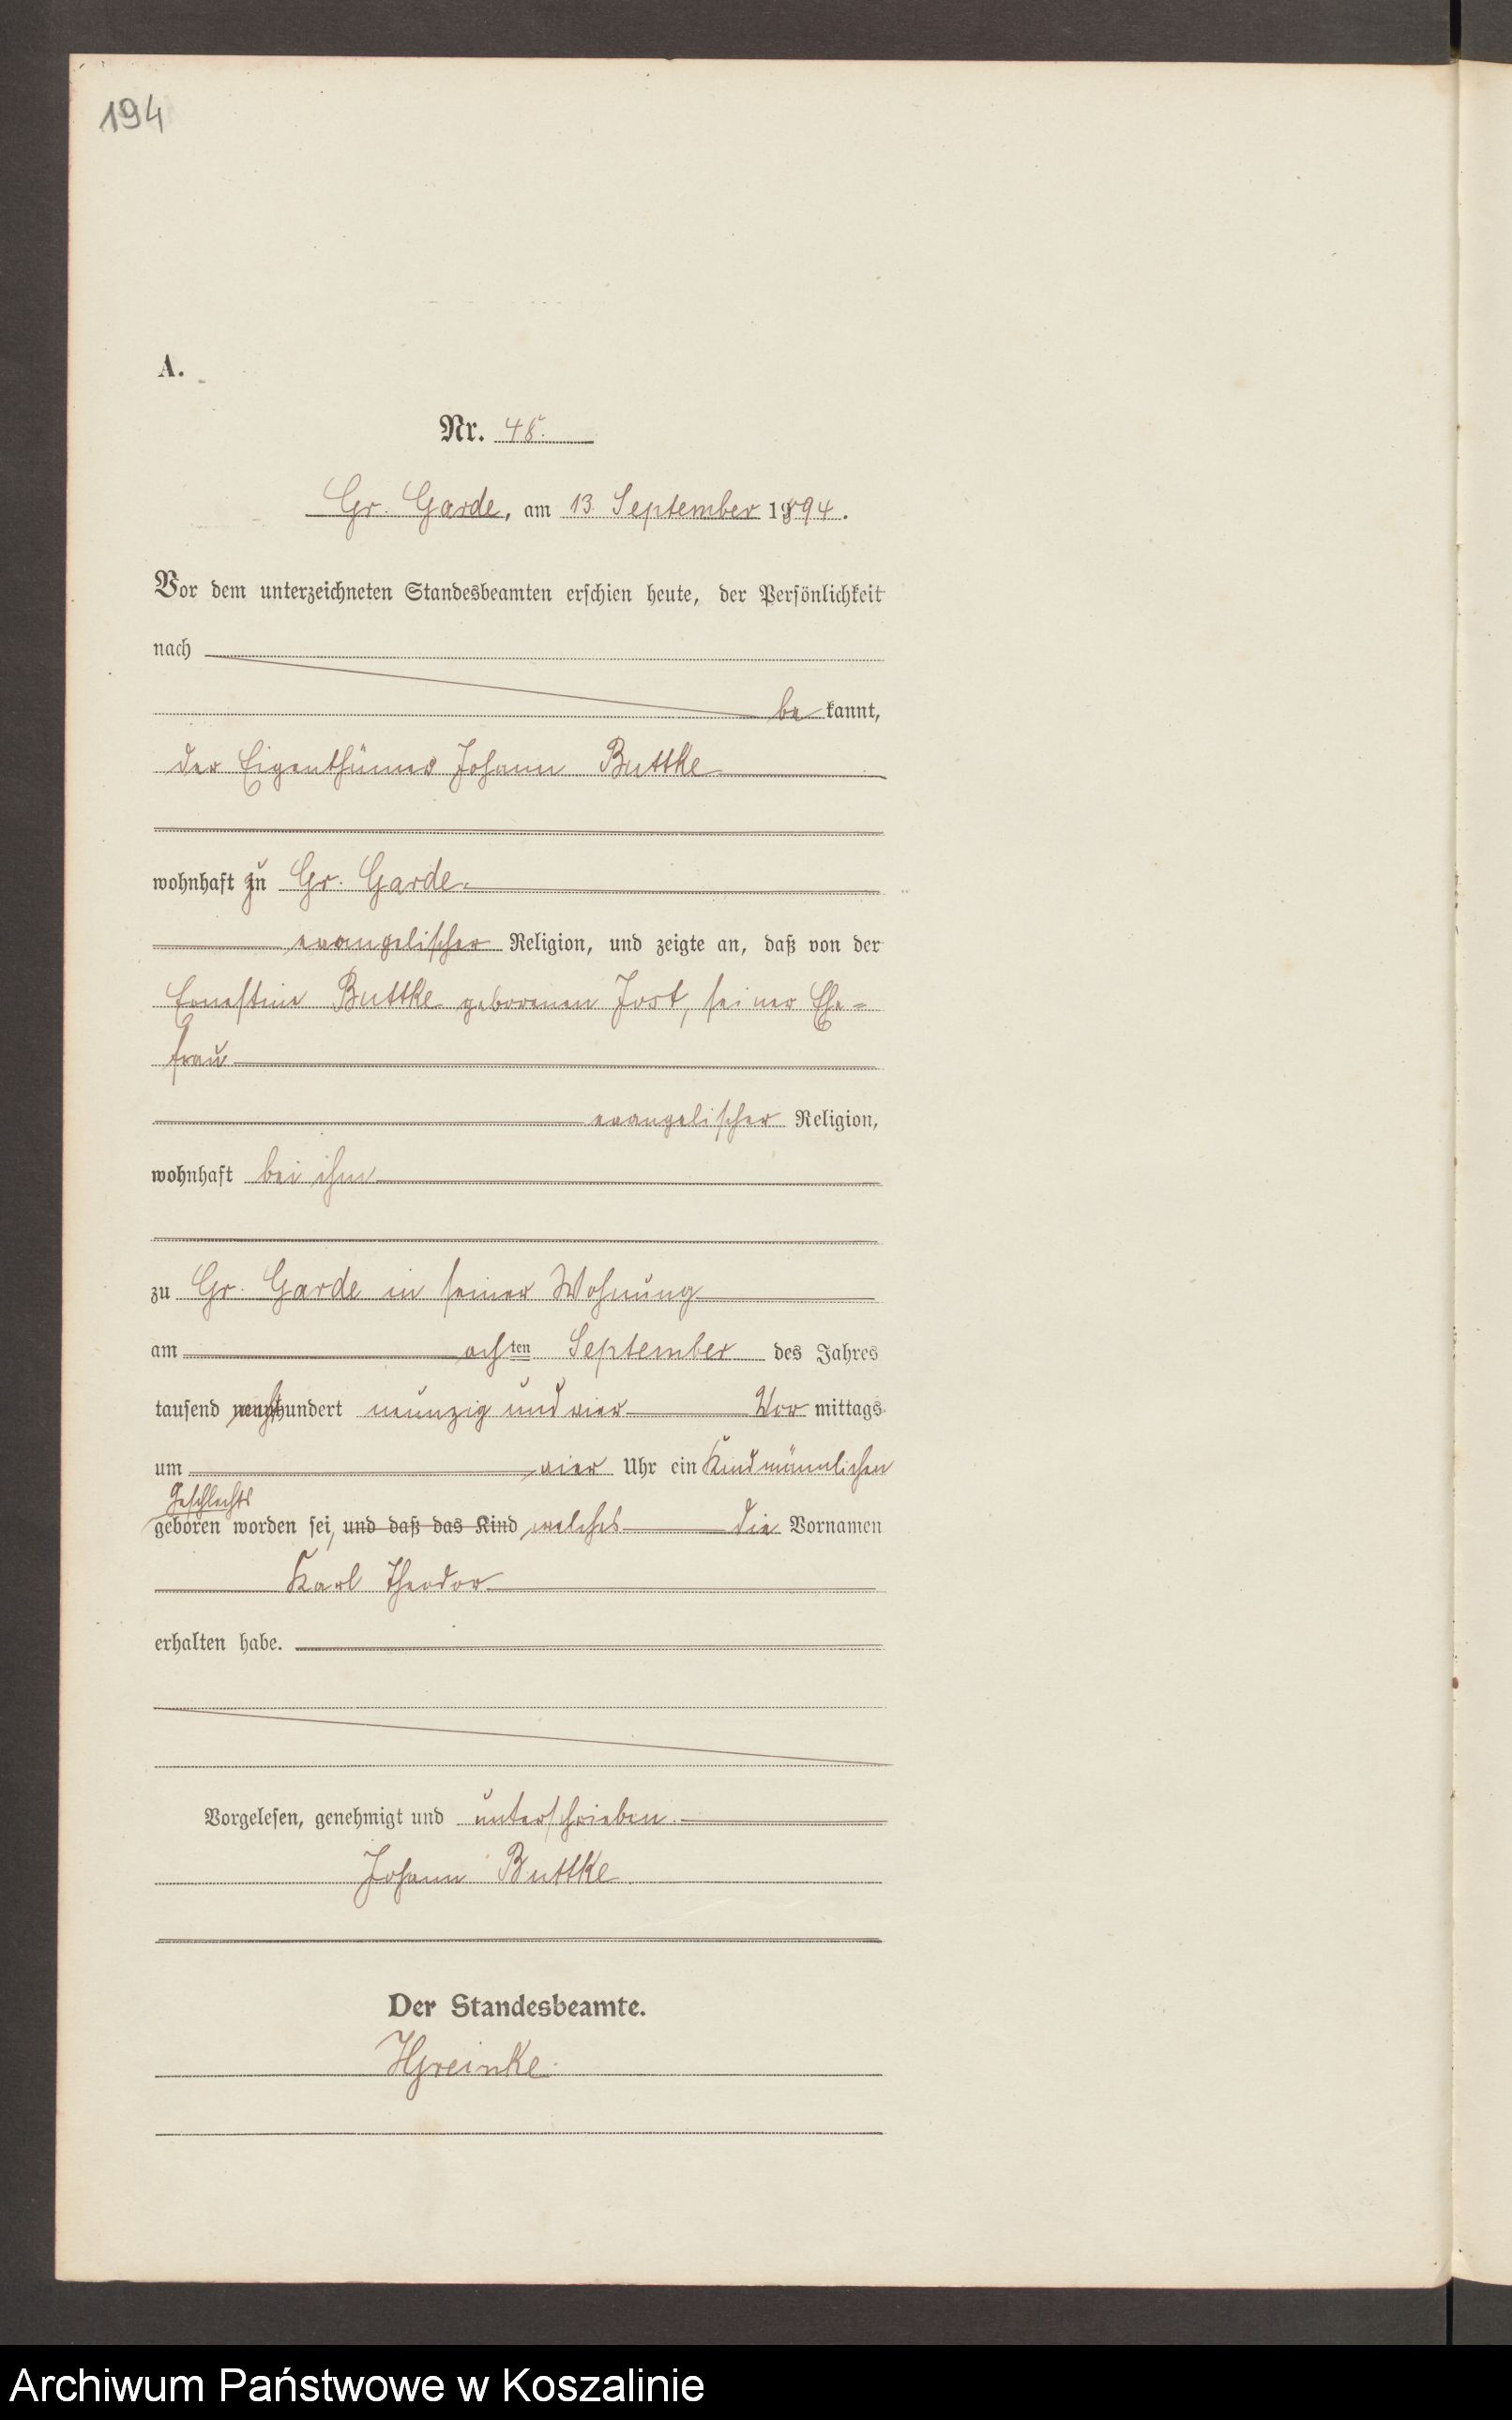 194
A.
Nr. 48.
Gr. Garde, am 13. September 1894.
Vor dem unterzeichneten Standesbeamten erschien heute, der Persönlichkeit
nach
be kannt,
der Eigenthümer Johann Buttke
wohnhaft zu Gr. Garde.
evangelischer Religion, und zeigte an, daß von der
Ernestine Buttke geborenen Jost, seiner Ehe=
frau
evangelischer Religion,
wohnhaft bei ihm
zu Gr. Garde in seiner Wohnung
am achten September des Jahres
tausend achthundert neunzig und vier Vor mittags
um vier Uhr ein Kind männlichen
Geschlechts
geboren worden sei, und daß das Kind welches die Vornamen
Karl Theodor
erhalten habe.
Vorgelesen, genehmigt und unterschrieben.
Johann Buttke.
Der Standesbeamte.
HGreinke.
Archiwum Państwowe w Koszalinie